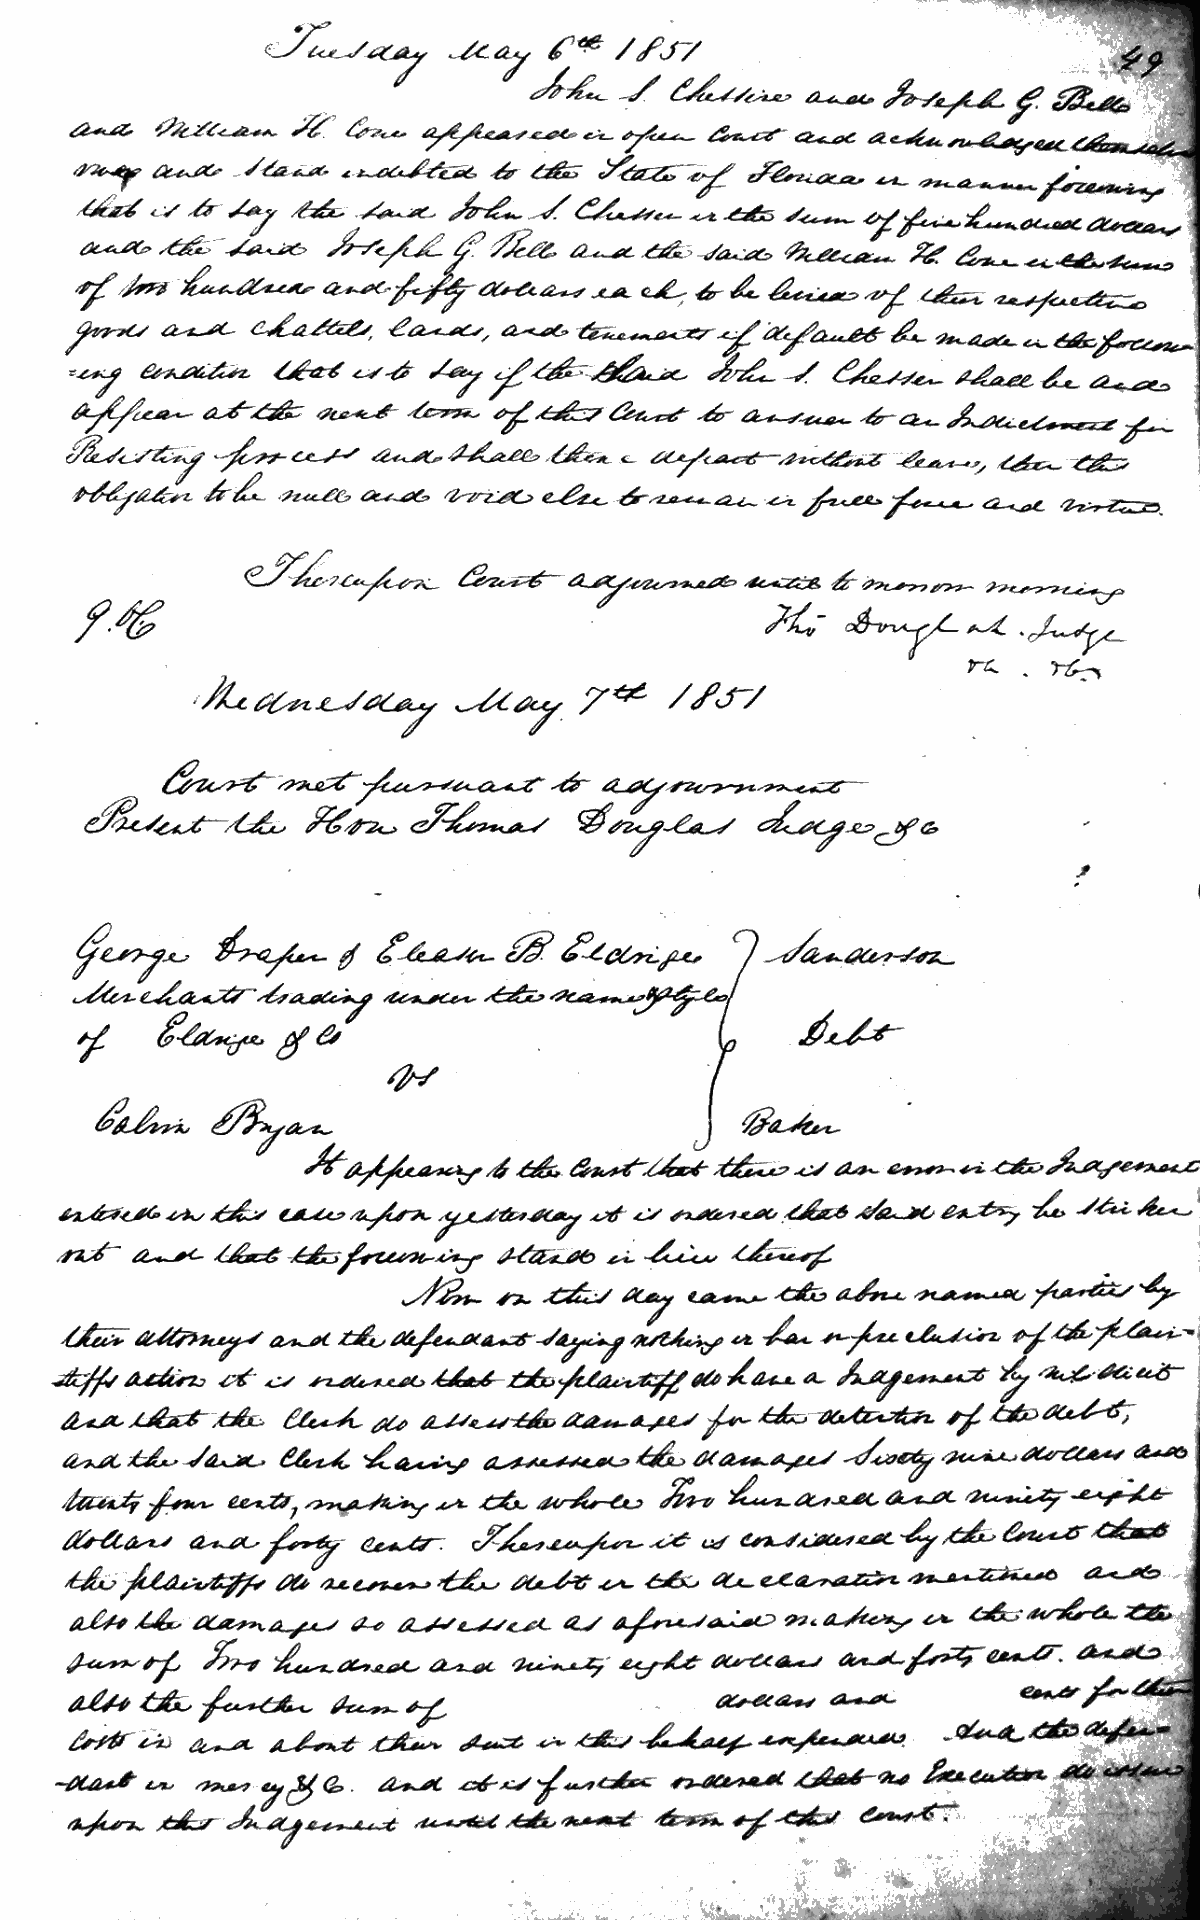 Tuesday May 6th 1851
49
John S. Chessire and Joseph G. Bell
and William H. Cone appeared in open Court and acknowledged themselves
and Stand indebted to the State of Florida in manner following
that is to say the said John S. Chesser in the sum of five hundred dollars
and the said Joseph G. Bell and the said William H. Cone in the sum
of two hundred and fifty dollars each, to be levied of their respective
goods and chattels, lands, and tenements if default be made in the follow-
=ing condition that is to say if the said John S. Chesser shall be and
appear at the next term of this Court to answer to an Indictment for
Resisting process and shall then depart without leave, then this
obligation to be null and void else to remain in full force and virtue.
Thereupon Court adjourned until to morrow morning
9. OC
Tho Douglas. Judge
Wednesday May 7th 1851
Court met pursuant to adjournment
Present the Hon Thomas Douglas Judge &c
George Draper & Eleaser B. Eldrige Sanderson
Merchants trading under the name & style
of Eldrige & Co Debt
vs
Calvin Bryan Baker
It appearing to the Court that there is an error in the Judgement
entered in this case upon yesterday it is ordered that said entry be stricken
out and that the following stand in lieu thereof
Now on this day came the above named parties by
their attorneys and the defendant saying nothing in bar or preclusion of the plain-
tiffs action it is ordered that the plaintiff do have a Judgement by nil dicit
and that the Clerk do assess the damages for the detention of the debt,
and the said Clerk having assessed the damages Sixty nine dollars and
twenty four cents, making in the whole Two hundred and ninety eight
dollars and forty cents. Thereupon it is considered by the Court that
the plaintiffs do recover the debt in the declaration mentioned and
also the damages so assessed as aforesaid making in the whole the
sum of Two hundred and ninety eight dollars and forty cents. and
also the further sum of dollars and cents for their
Costs in and about their suit in this behalf expended. And the defen-
-dant in mercy &c. and it is further ordered that no Execution do issue
upon this Judgement until the next term of this Court.